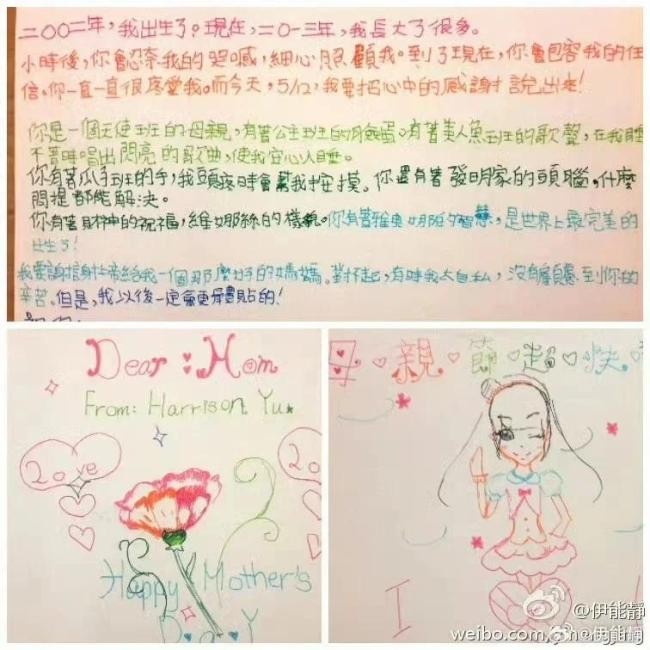 二○○二年，我出生了。現在，二○一三年，我長大了很多。
小時後，你會忍奈我的哭喊，細心照顧我。到了現在，你會包容我的任
信。你一直一直很疼愛我。而今天，5/12，我要把心中的感謝說出來！
你是一個天使班的母親，有著公主班的臉蛋。有著美人魚班的歌聲，在我睡
不著時唱出閃亮的歌曲，使我安心入睡。
你有著瓜子班的手，我頭疼時會幫我按摸。你還有著發明家的頭腦。什麼
問提都能解決。
你有著財神的祝福，維娜絲的樣貌。你有著雅典娜的智慧，是世界上最完美的
出生了！
我要謝謝上帝給我一個那麼好的媽媽。對不起，有時我太自私，沒有顧慮到你的
辛苦。但是，我以後一定會更體貼的！
Dear: Mom
From: Harrison Yu
Love
Happy Mother's
Day
母親節超快
I
@伊能靜
weibo.com/